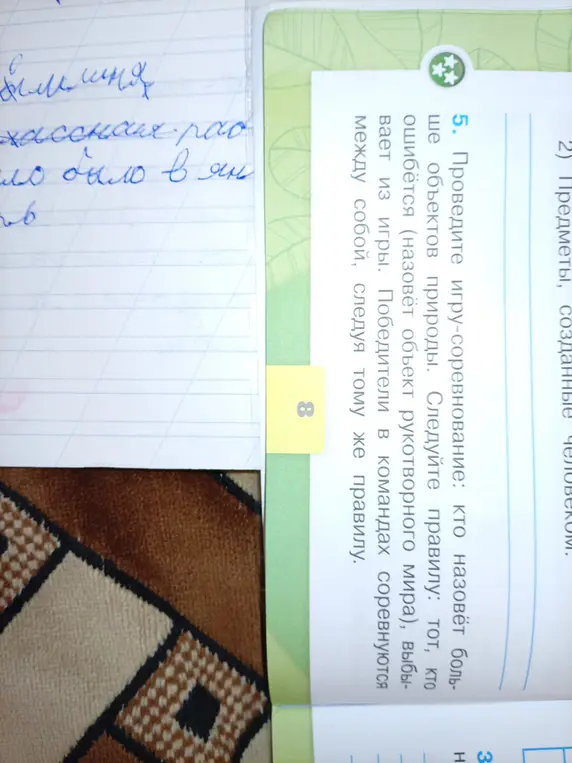 2) Предметы, созданные человеком.
5. Проведите игру-соревнование: кто назовёт боль-
ше объектов природы. Следуйте правилу: тот, кто
ошибётся (назовёт объект рукотворного мира), выбы-
вает из игры. Победители в командах соревнуются
между собой, следуя тому же правилу.
8
3
н
было в ян